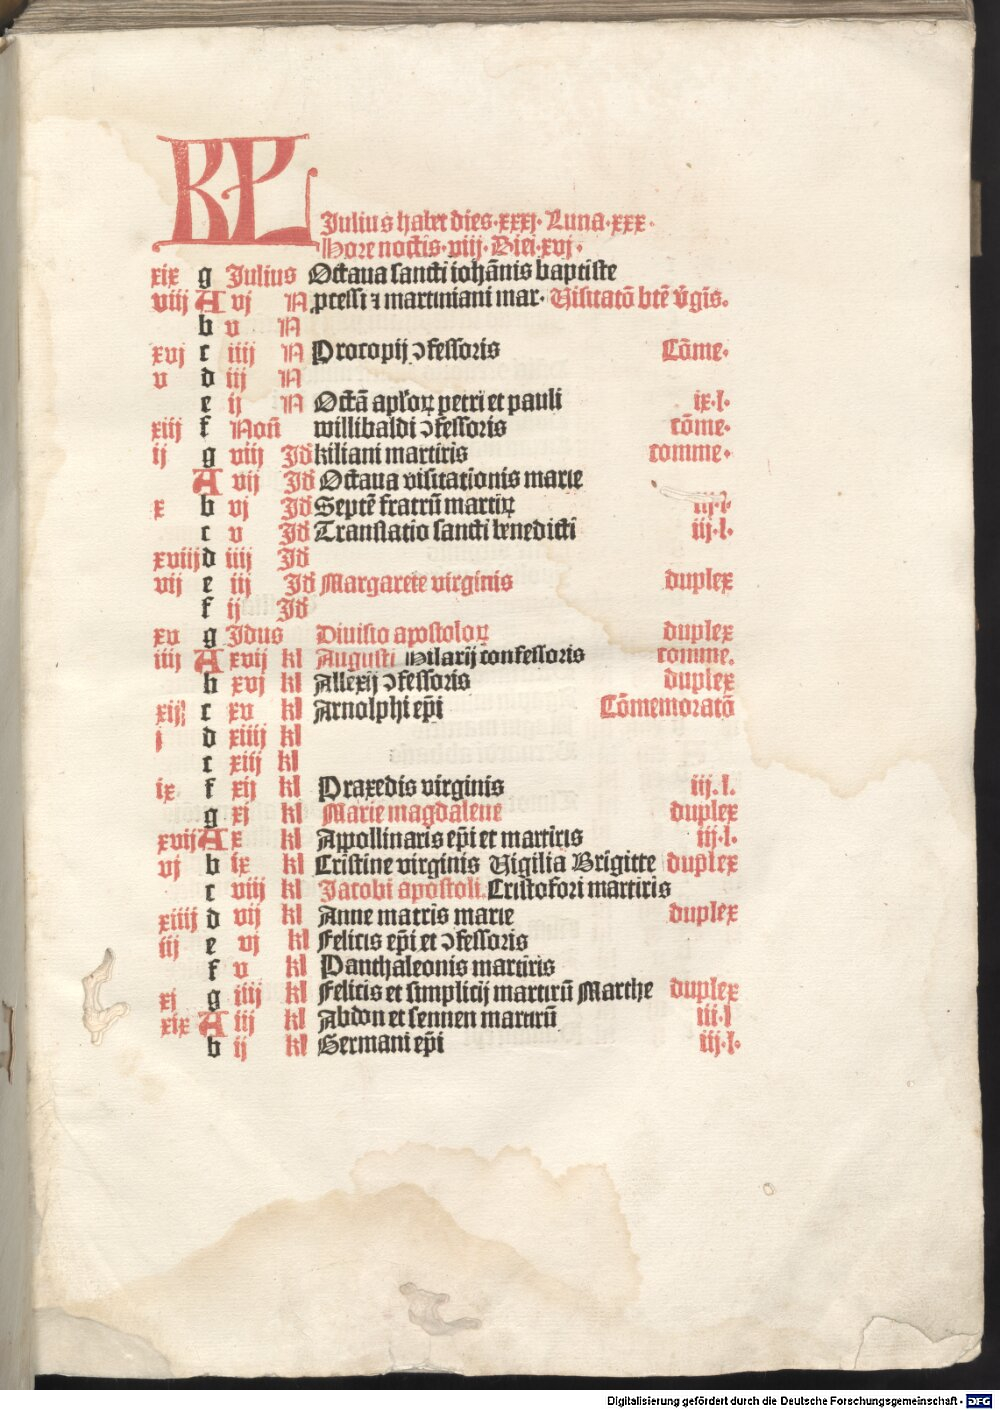 KL
Julius habet dies·xxxj· Luna·xxx·
Hore noctis·viij·Diei·xvj·
xix g Julius Octaua sancti iohānis baptiste
viij A vj N ꝓcessi ⁊ martiniani mar· Visitatō btē v̄gīs.
b v N
xvj c iiij N Procopij ↄfessoris Cōme·
v d iij N
e ij N Octā apl'oꝝ petri et pauli ix·l·
xiij f Noñ willibaldi ↄfessoris cōme·
ij g viij Jd kiliani martiris comme·
A vij Jd Octaua visitationis marie
x b vj Jd Septē fratrū martiꝝ iij·l·
c v Jd Translatio sancti benedicti iij·l.
xviij d iiij Jd
vij e iij Jd Margarete virginis duplex
f ij Jd
xv g Jdus Diuisio apostoloꝝ duplex
iiij A xvij kl Augusti Hilarij confessoris comme.
b xvj kl Allexij ↄfessoris duplex
xij c xv kl Arnolphi ep̄i Cōmemoratō
j d xiiij kl
c xiij kl
ix f xij kl Praxedis virginis iij.l.
g xj kl Marie magdalene duplex
xvij A x kl Appollinaris ep̄i et martiris iij·l·
vj b ix kl Cristine virginis Vigilia Brigitte duplex
c viij kl Jacobi apostoli. Cristofori martiris
xiiij d vij kl Anne matris marie duplex
iij e vj kl Felicis ep̄i et ↄfessoris
f v kl Panthaleonis martiris
xj g iiij kl Felicis et simplicij martirū Marthe duplex
xix A iij kl Abdon et sennen martirū iij·l
b ij kl Germani ep̄i iij·l·
Digitalisierung gefördert durch die Deutsche Forschungsgemeinschaft - DFG